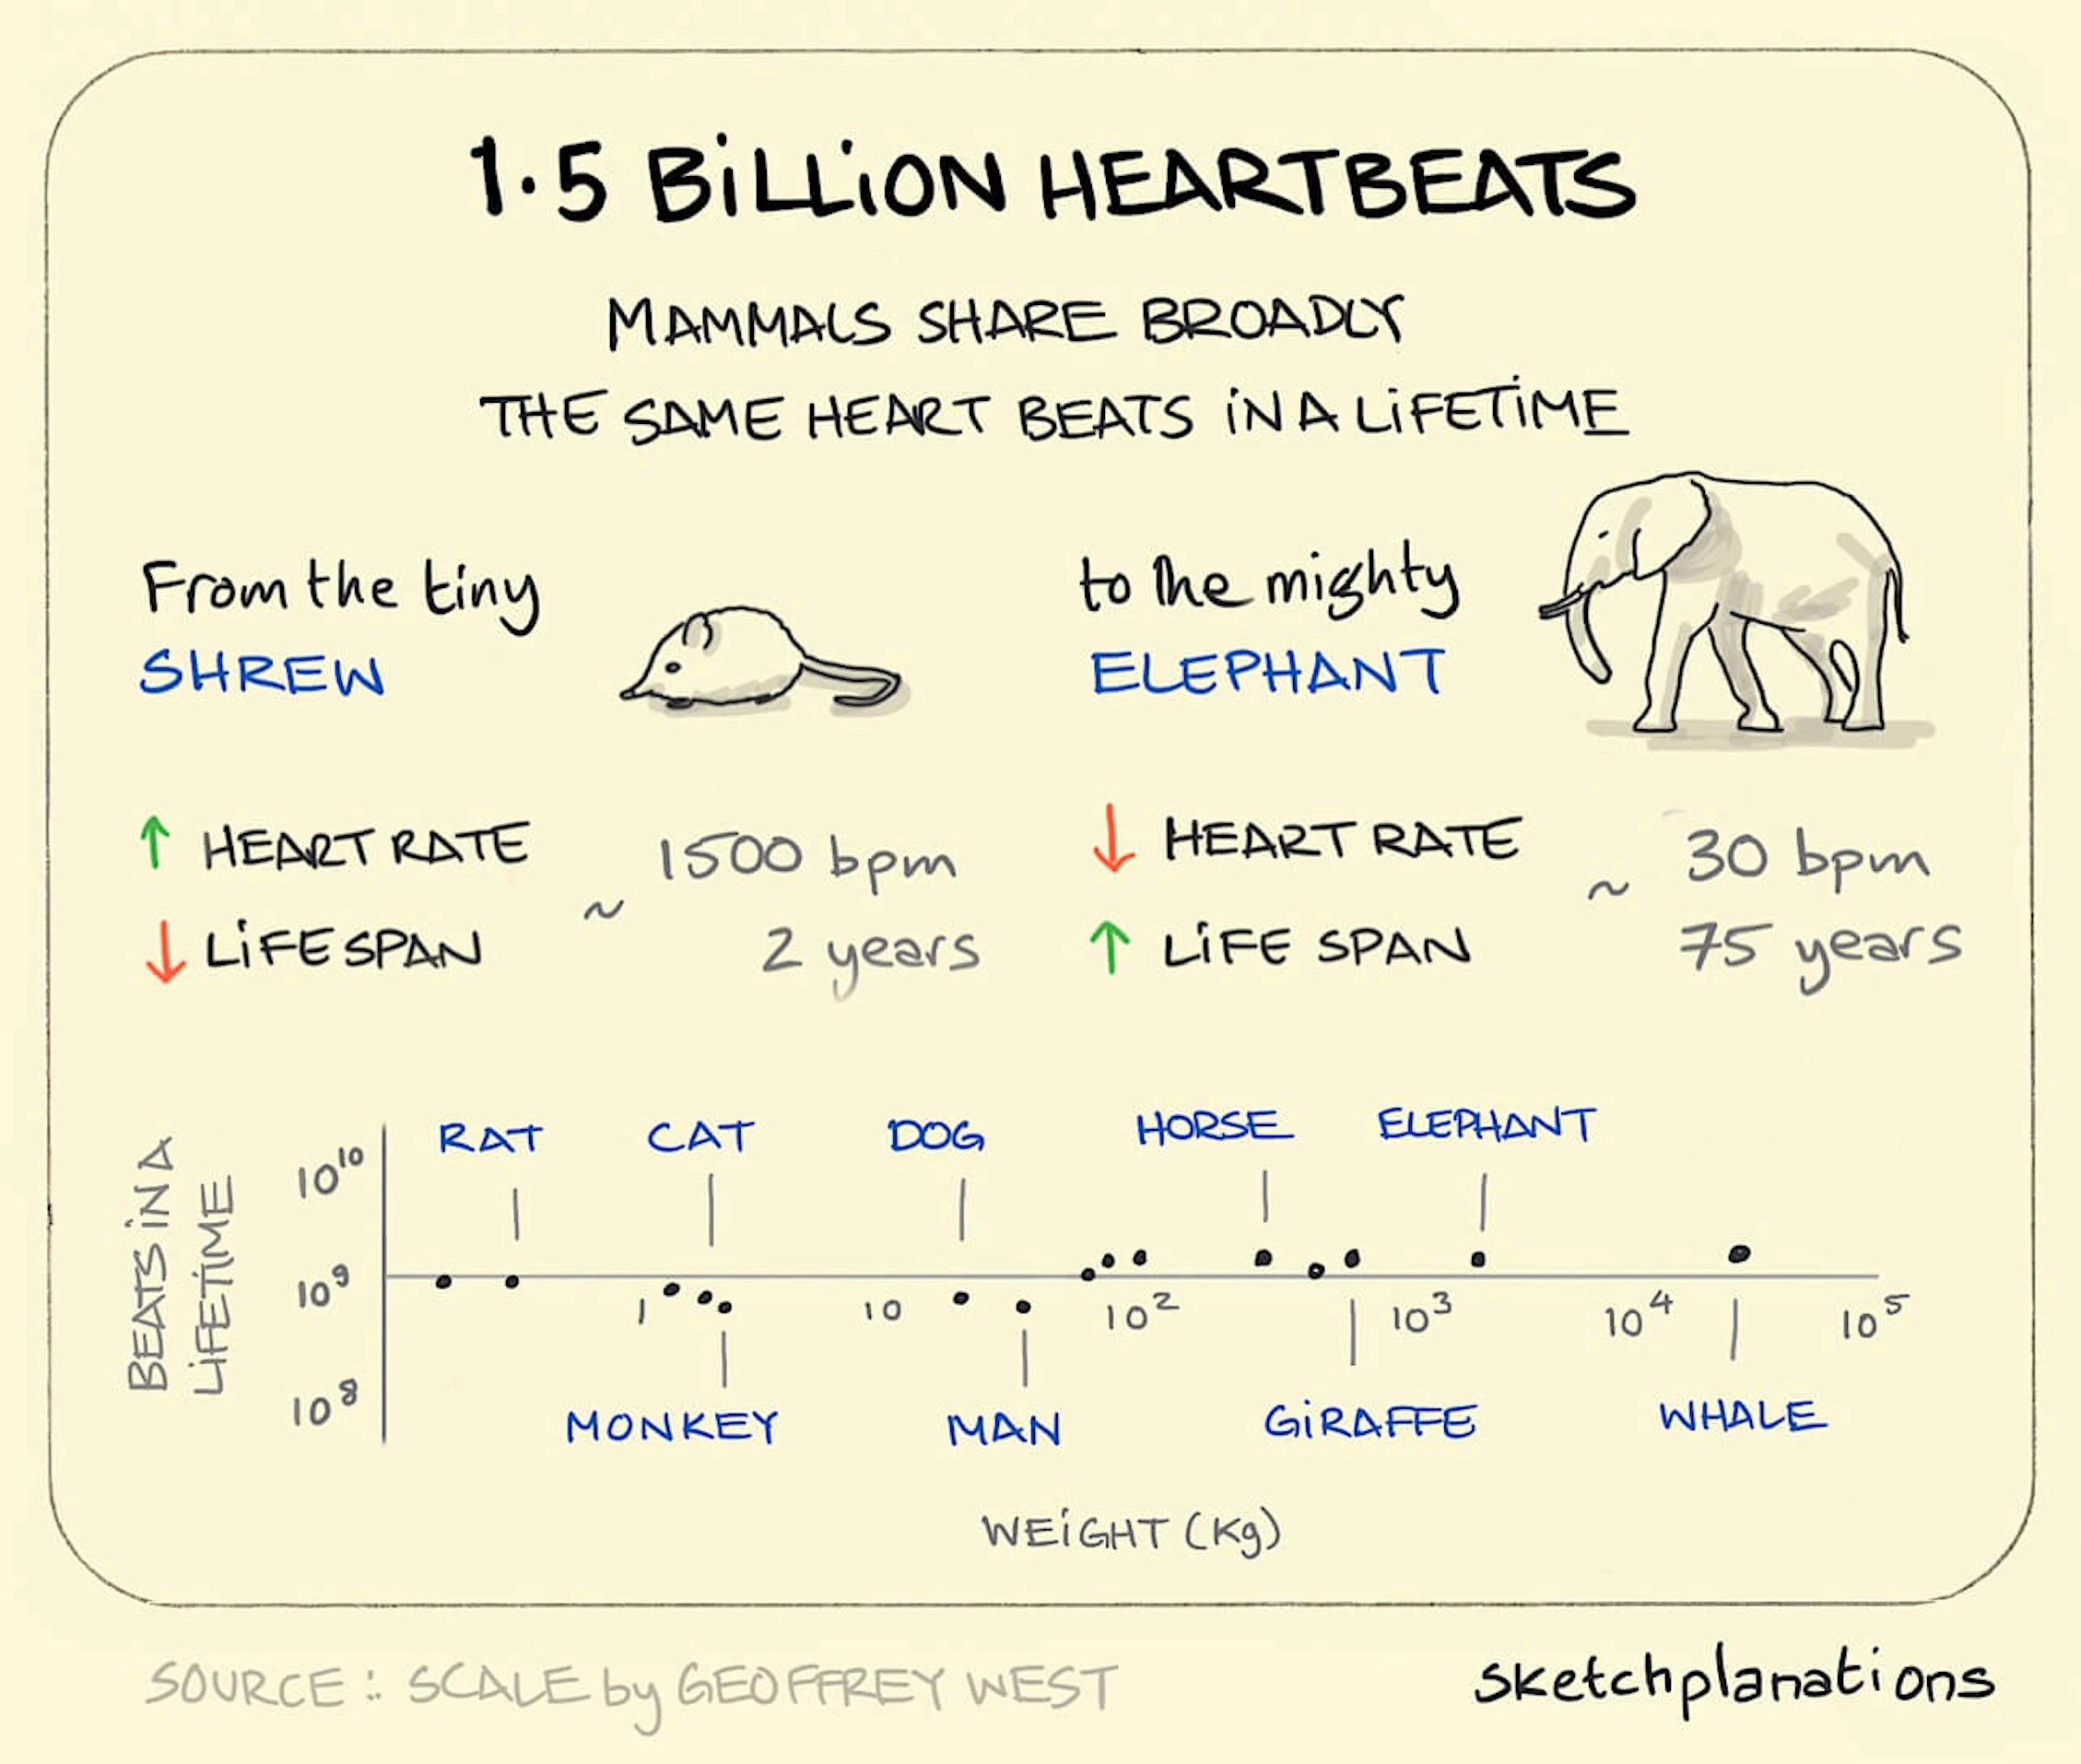 1.5 BiLLiON HEARTBEATS
MAMMALS SHARE BROADLY
THE SAME HEART BEATS iN A LiFETiME
From the tiny
SHREW
to the mighty
ELEPHANT
↑ HEART RATE
↓ LiFESPAN
~ 1500 bpm
2 years
↓ HEART RATE
↑ LiFE SPAN
~ 30 bpm
75 years
BEATS iN A
LiFETiME
10¹⁰
10⁹
10⁸
RAT CAT DOG HORSE ELEPHANT
1 10 10² 10³ 10⁴ 10⁵
MONKEY MAN GiRAFFE WHALE
WEiGHT (Kg)
SOURCE : SCALE by GEOFFREY WEST
sketchplanations